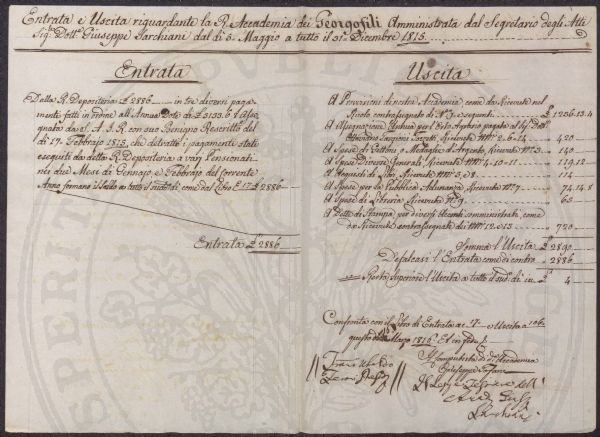 Entrata e Uscita riguardante la R. Accademia dei Georgofili Amministrata dal Segretario degli Atti
Sig. Dott. Giuseppe Sarchiani dal dì 5. Maggio a tutto il 31. Dicembre 1815.
Entrata
Dalla R. Depositeria £ 2886 in tre diversi paga-
menti fatti in ordine all'Annua Dote di £ 3153.6.8 Asse-
gnata da S. A. I. R. con suo Benigno Rescritto del
dì 17. Febbrajo 1815, che detratti i pagamenti stati
eseguiti da detta R. Depositeria a varj Pensionati
nei due Mesi di Gennajo, e Febbrajo del corrente
Anno formano il Saldo a tutto il sud. dì come dal Libro £ 17 £ 2886
Entrata £ 2886
Uscita
A Provvisioni di nostra Accademia come da Ricevute nel
Ruolo contrassegnato di N. 1 e seguenti £ 1206.13.4
A Assegnazione Annua per l'Orto Agrario pagata al Sig. Dott.
Ottaviano Targioni Tozzetti Ricevute N. 2.6.14 420
A Spese di Gettoni e Medaglie d'Argento, Ricevute N. 3 140
A Spese Diverse Generali, Ricevute N. 4.10.11 119.12
A Acquisti di Libri Ricevute N. 5, e 8 114
A Spese per la Pubblica Adunanza Ricevuta N. 7 74.14.8
A Spese di Libreria Ricevuta N. 9 63
A Dette di Stampa, per diversi oggetti somministrati, come
da Ricevute contrassegnate di N. 12 e 13 720
Somma l'Uscita £ 2890
Defalcasi l'Entrata come di contro 2886
Resta Superiore l'Uscita a tutto il sud. dì in £ 4
Confronta con il Libro di Entrata ac 17 e Uscita a 106
questo dì Marzo 1816. Et in fede
Il Computista di d. Accademia
Giuseppe